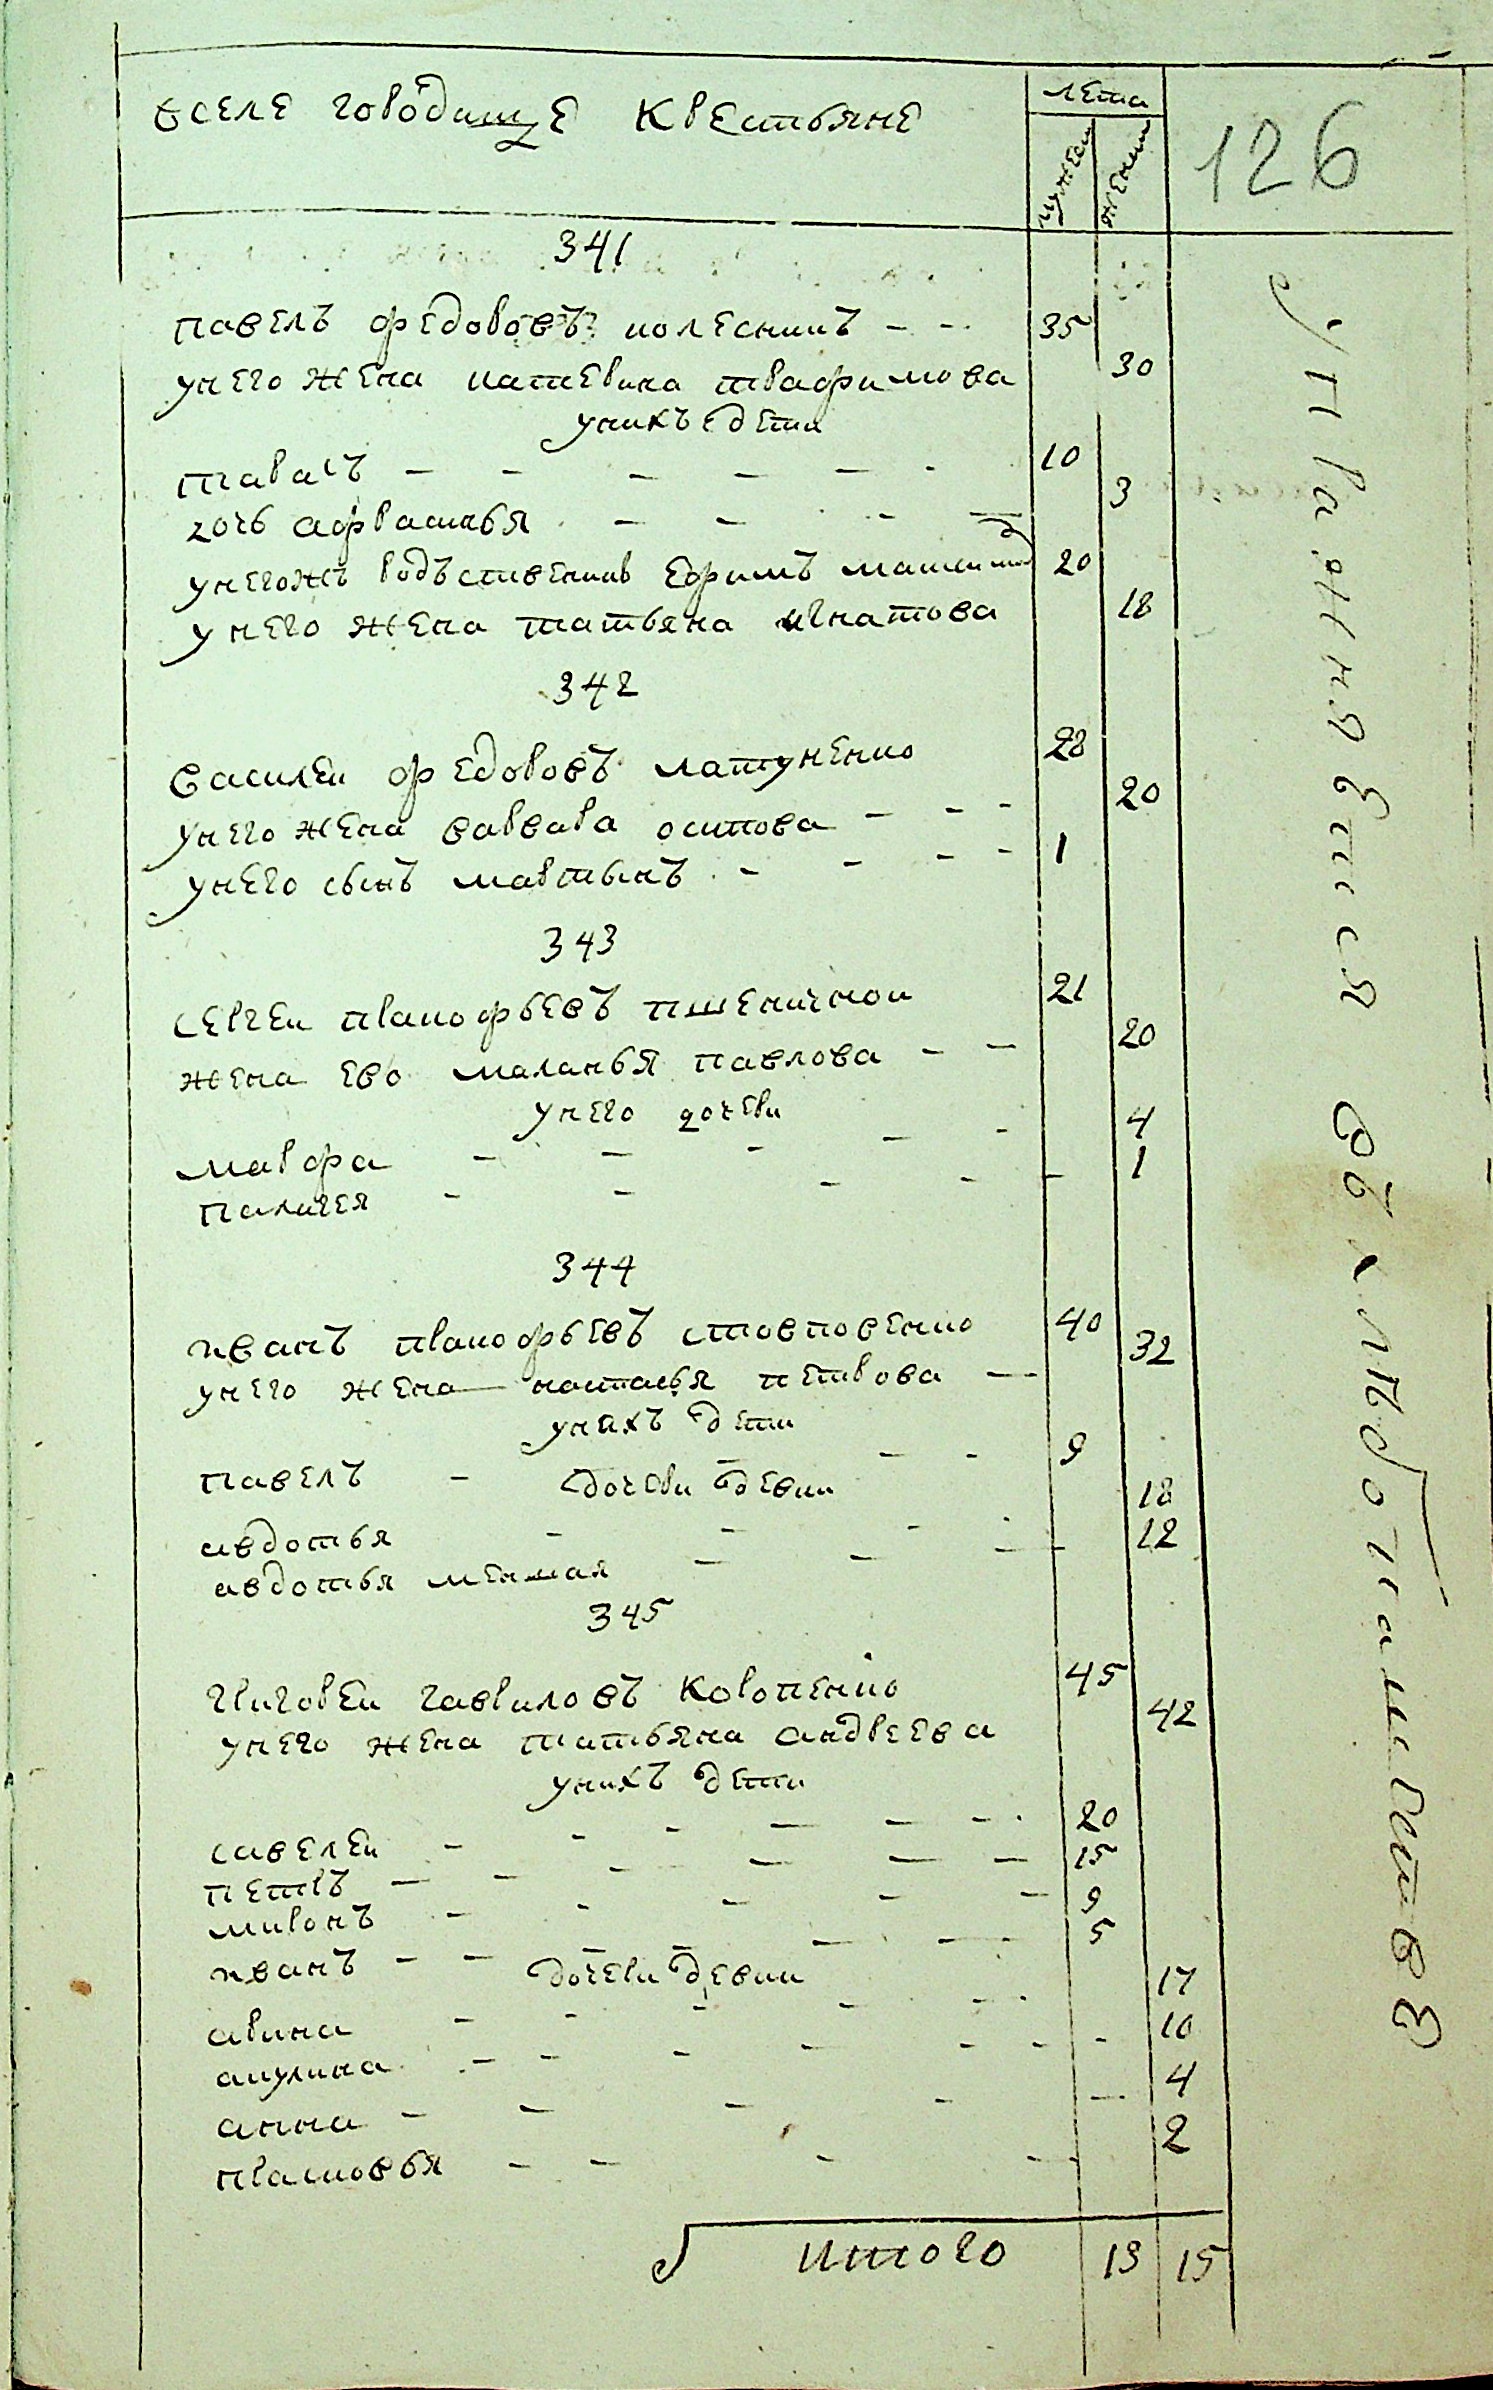 вселе городище крестьяне
лета
мужес
женски
126
341
павелъ федоровъ колесникъ 35
унего жена катерина трафимова 30
унихъ дети
тарасъ 10
дочь афрасинья 3
унегожъ родъственикъ ефимъ 20
у него жена татьяна игнатова 18
342
василеи федоровъ латуненко 28
унего жена варвара осипова 20
унего сынъ мартынъ 1
343
сергеи пракофьевъ пшеничнои 21
жена ево маланья павлова 20
унего дочери
марфа 4
палагея 1
344
иванъ пракофьевъ стовповенко 40
унего жена настасья петрова 32
унихъ дети
павелъ 9
дочери девки
авдотья 18
авдотья меншая 12
345
григореи гавриловъ коропенко 45
унего жена татьяна андреева 42
унихъ дети
савелеи 20
петръ 15
миронъ 9
иванъ 5
дочери девки
арина 17
акулина 10
анна 4
прасковья 2
итого 13 15